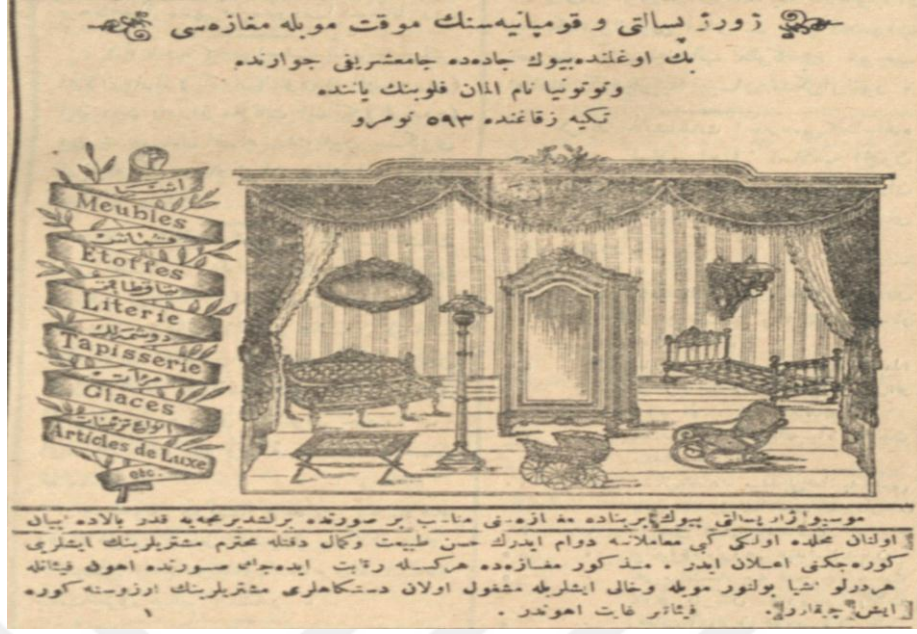 ژورژ پسالتی و قومپانیه‌سنك موقت موبله مغازه‌سی
بك اوغلنده بیوك جاده‌ده جامعشریفی جوارنده
وتوتونیا نام المان قلوبنك یاننده
تكیه زقاغنده ۵۹۳ نومرو
اشیا
Meubles
Etoffes
Literie
دوشمه‌لك
Tapisserie
Glaces
Articles de Luxe
etc.
موسیو ژورژ پسالتی بیوك بربناده مغازه‌سنی مناسب بر صورتده یرلشدیرنجه‌یه قدر بالاده بیان
اولنان محلده اولكی كبی معاملاتنه دوام ایدرك حسن طبیعت وكمال دقتله محترم مشتریلرینك ایشلرینی
كوره‌جكنی اعلان ایدر . مذكور مغازه‌ده هركسله رقابت ایده‌جك صورتده اهون فیئاتله
هردرلو اشیا بولنور موبله وخالی ایشلریله مشغول اولان دستكاهلری مشتریلرینك ارزوسنه كوره
ایش چیقاریر. فیئاتلر غایت اهوندر .
۱